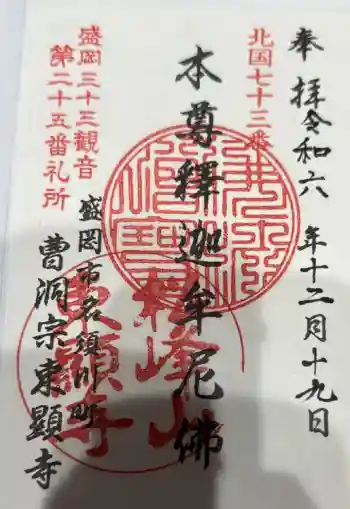 奉拝
令和六年十二月十九日
北国七十三番
本尊釋迦牟尼佛
盛岡三十三観音
第二十五番礼所
盛岡市名須川町
曹洞宗東顯寺
峰山
東顯寺